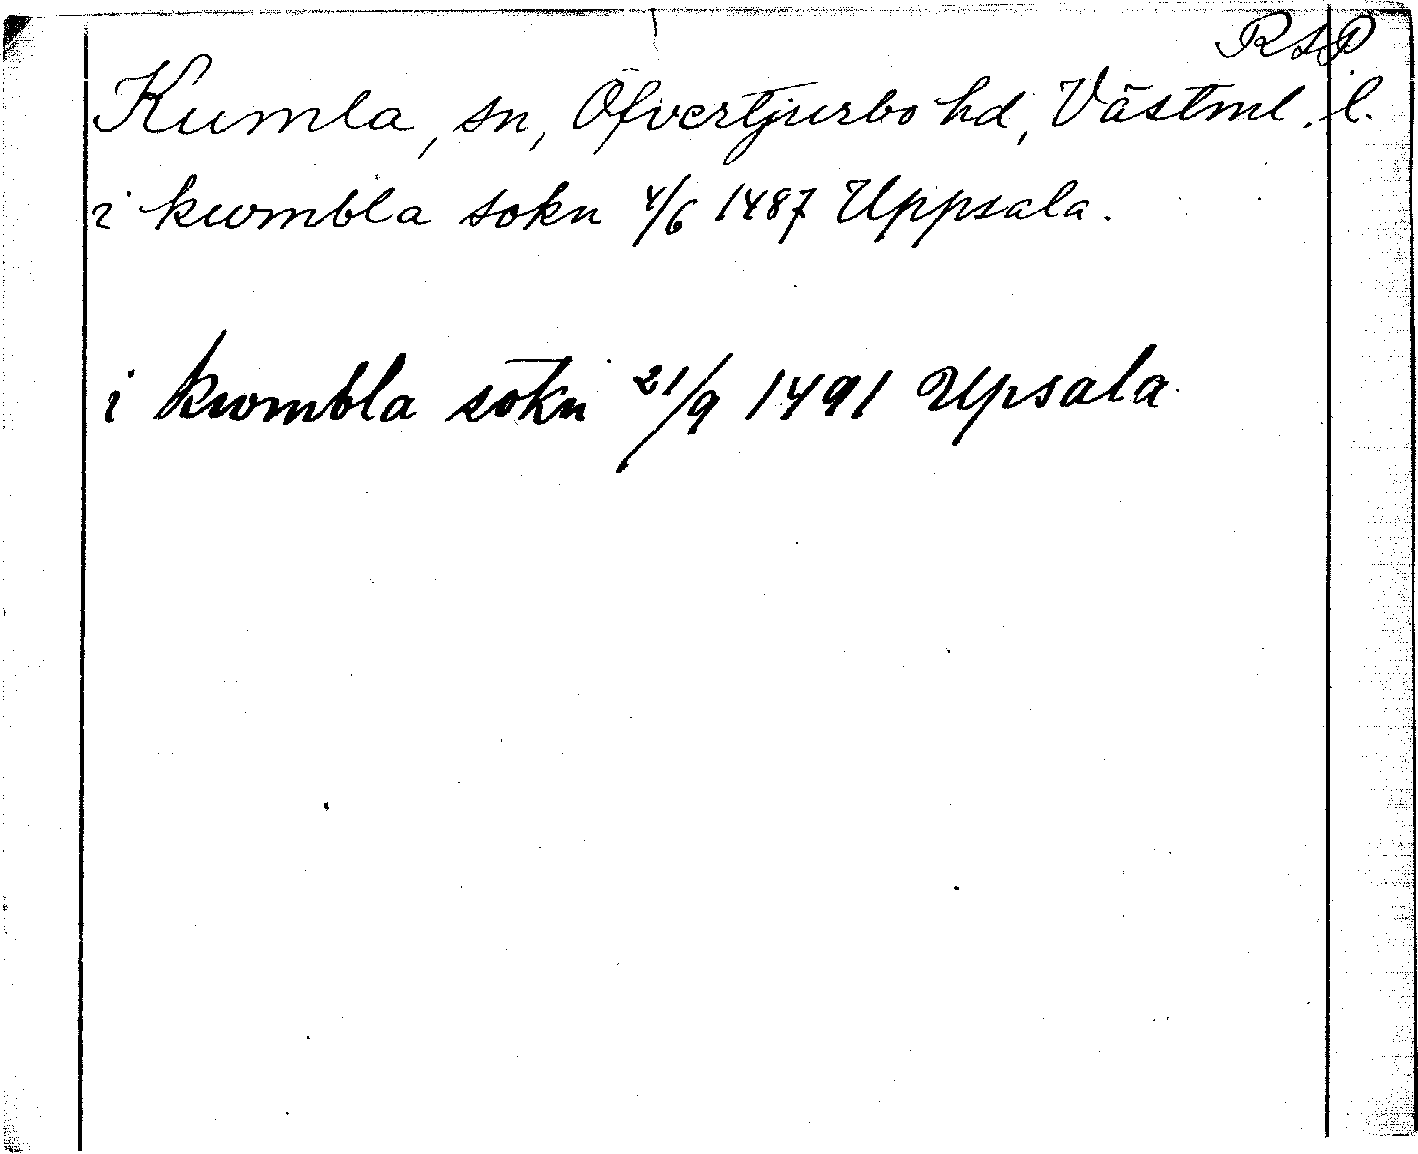 RAP
Kumla, sn, Öfvertjurbo hd, Västml. l.
i kwmbla sokn 4/6 1487 Uppsala.
i kwmbla sokn 21/9 1491 Upsala